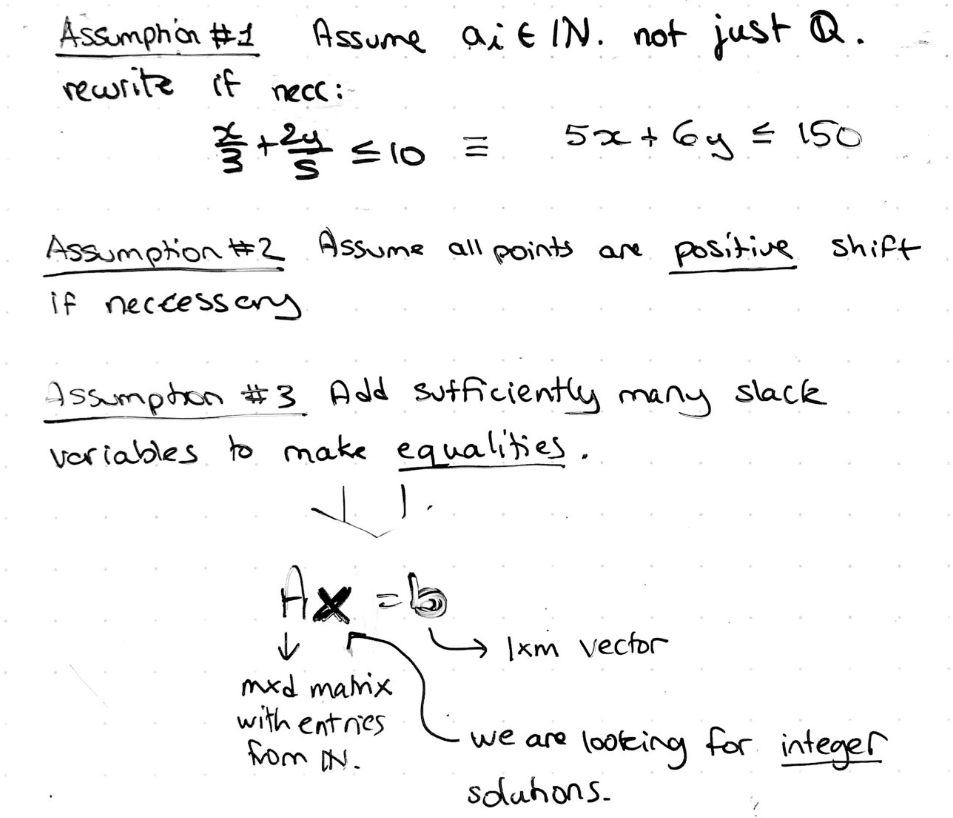 Assumption #1 Assume ai ∈ ℕ. not just ℚ.
rewrite if necc:
x/3 + 2y/5 ≤ 10 ≡ 5x + 6y ≤ 150
Assumption #2 Assume all points are positive shift
if neccessary
Assumption #3 Add sufficiently many slack
variables to make equalities.
Ax = b
1xm vector
mxd matrix
with entries
from ℕ.
we are looking for integer
solutions.